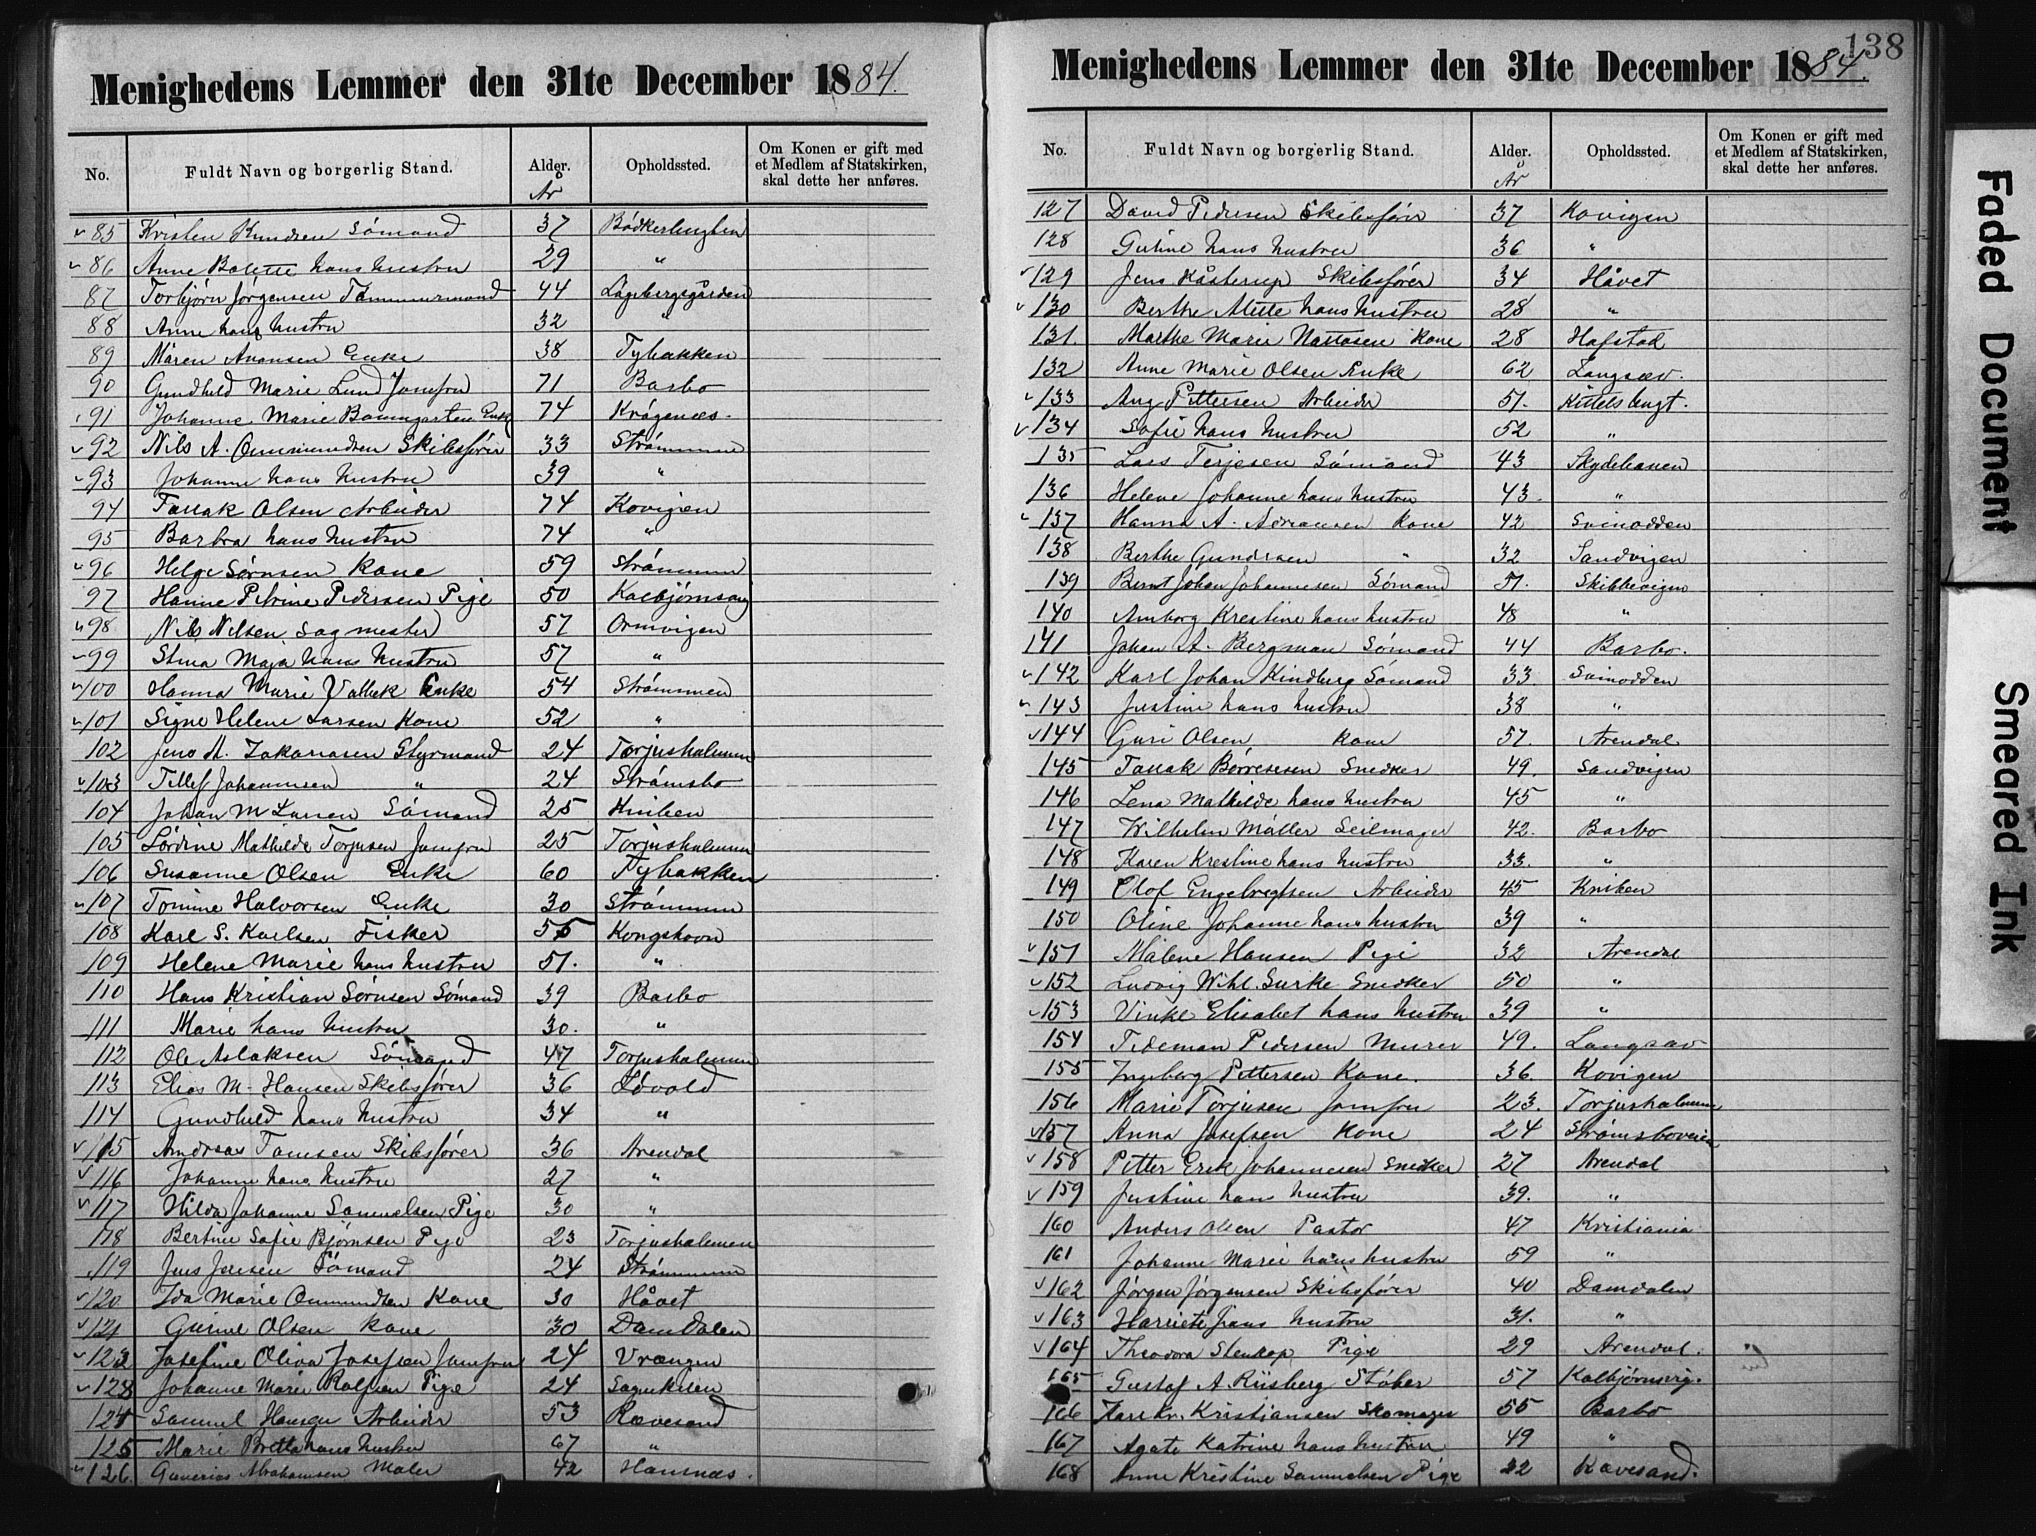 Menighedens Lemmer den 31te December 1884.
No. Fuldt Navn og borgerlig Stand. Alder. Opholdssted. Om Konen er gift med et Medlem af Statskirken, skal dette her anføres.
År
85 Kristen Knudsen Sømand 37 Bødkerbugten
86 Anne Bolette hans hustru 29 "
87 Torbjørn Jørgensen Tømmermand 44 Lågebergsgården
88 Anne hans hustru 32 "
89 Maren Avansen Enke 38 Tybakken
90 Gundhild Marie Lund Jomfru 71 Barbo
91 Johanne Marie Baumgarten Enke 74 Krågenæs.
92 Nils A. Ommundsen Skibsfører 33 Strømmen
93 Johanne hans hustru 39 "
94 Tallak Olsen Arbeider 74 Kovigen
95 Barbra hans hustru 74 "
96 Helge Sørnsen Kone 59 Strømmen
97 Hanne Petrine Pedersen Pige 50 Kolbjørnsvig
98 Nils Nilsen Sagmester 57 Ormvigen
99 Stina Maja hans hustru 57 "
100 Hanna Marie Valbek Enke 54 Strømmen
101 Signe Helene Larsen Kone 52 "
102 Jens M. Zakariasen Styrmand 24 Torjusholmen
103 Tellef Johannesen " 24 Strømsbo
104 Johan M Larsen Sømand 25 Kniben
105 Lørdine Mathilde Torjusen Jomfru 25 Torjusholmen
106 Susanne Olsen Enke 60 Tybakken
107 Tomine Halvorsen Enke 30 Strømmen
108 Karl S. Karlsen Fisker 55 Kongshavn
109 Helene Marie hans hustru 51. "
110 Hans Kristian Sørnsen Sømand 39 Barbo
111 Marie hans hustru 30. "
112 Ole Aslaksen Sømand 47 Torjusholmen
113 Elias M. Hansen Skibsfører 36 Løvold
114 Gundhild hans hustru 34 "
115 Andreas Tomsen Skibsfører 36 Arendal
116 Johanne hans hustru 27 "
117 Hilda Johanne Samuelsen Pige 30 "
118 Bertine Sofie Bjørnsen Pige 23 Torjusholmen
119 Jens Jensen Sømand 24 Strømmen
120 Ida Marie Ommundsen Kone 30 Håvet
121 Gurine Olsen Kone 30 Damdalen
122 Josefine Oliva Josefsen Jomfru 24 Vrængen
123 Johanne Marie Rolfsen Pige 24
124 Samuel Hansen Arbeider 53 Rævesand
125 Marie Britta hans hustru 67 "
126 Gunerius Abrahamsen Maler 42 Hansnæs.
138
Menighedens Lemmer den 31te December 1884.
No. Fuldt Navn og borgerlig Stand. Alder. Opholdssted. Om Konen er gift med et Medlem af Statskirken, skal dette her anføres.
År
127 David Pedersen Skibsfører 37 Kovigen
128 Gurine hans hustru 36 "
129 Jens Kåsterup Skibsfører 34 Håvet
130 Berthe Mette hans hustru 28 "
131. Marthe Marie Nassosen Kone 28 Hofstad
132 Anne Marie Olsen Enke 62 Langsæv.
133 Aug Pettersen Arbeider 51. Kittelsbugt.
134 Sofie hans hustru 52 "
135 Lars Terjesen Sømand 43 Skydebanen
136 Helene Johanne hans hustru 43. "
137 Hanna A. Adriansen Kone 42 Svinodden
138 Berthe Gundersen " 32 Sandvigen
139 Bernt Johan Johannesen Sømand 51. Skibbevigen
140 Amborg Krestine hans hustru 48 "
141 Johan A. Bergman Sømand 44 Barbo.
142 Karl Johan Kindberg Sømand 33 Svinodden
143 Justine hans hustru 38 "
144 Guri Olsen Kone 57. Arendal
145 Tallak Børresesen Snedker 49. Sandvigen
146 Lena Mathilde hans hustru 45 "
147 Wilhelm Møller Seilmager 42. Barbo
148 Karen Krestine hans hustru 33. "
149 Olof Engebregtsen Arbeider 45 Kniben
150 Oline Johanne hans hustru 39 "
151 Malene Hansen Pige 32 Arendal
152 Ludvig Wihl. Surke Snedker 50 "
153 Vinke Elisabet hans hustru 39 "
154 Tideman Pedersen Murer 49. Langsæv
155 Ingeborg Pettersen Kone. 36. Kovigen
156 Marie Torjusen Jomfru 23. Torjusholmen
157 Anna Josefsen Kone 24 Strømsboveien
158 Petter Erik Johannesen Snedker 27 Arendal
159 Justine hans hustru 39. "
160 Anders Olsen Pastor 47 Kristiania
161 Johanne Marie hans hustru 59 "
162 Jørgen Jørgensen Skibsfører 40 Damdalen
163 Harriete hans hustru 31. "
164 Theodora Stenkop Pige 29 Arendal.
165 Gustaf A. Riisberg Støber 57 Kolbjørnsvig.
166 Karl Kr. Kristiansen Skomager 55 Barbo
167 Agate Katrine hans hustru 49 "
168 Anne Kristine Samuelsen Pige 32 Rævesand.
Faded Document
Smeared Ink